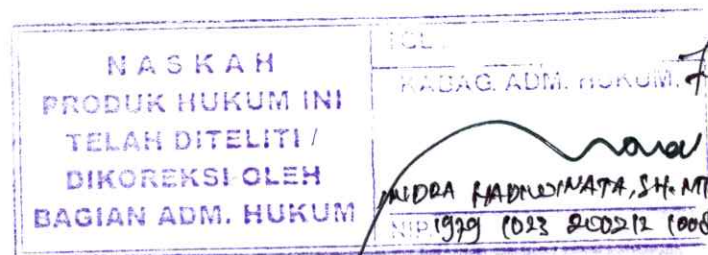 NASKAH
PRODUK HUKUM INI
TELAH DITELITI /
DIKOREKSI OLEH
BAGIAN ADM. HUKUM
TGL :
KABAG. ADM. HUKUM.
SH. MT
NIP. 1979 1023 200212 1008